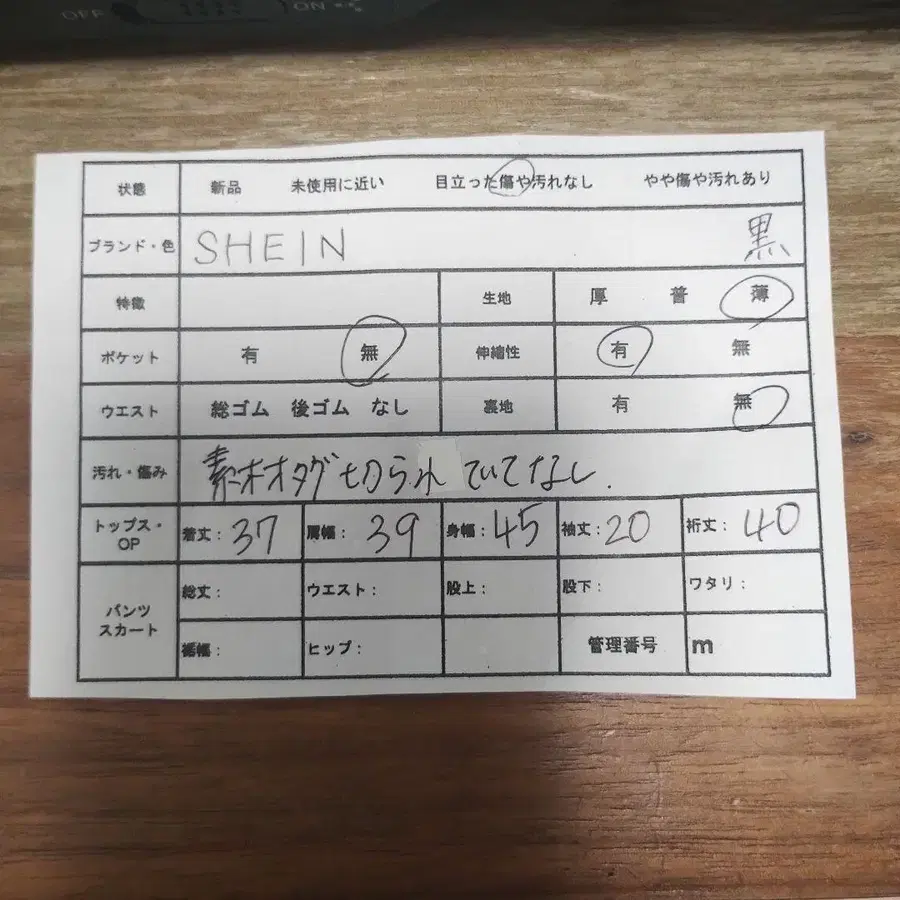 OFF ON
状態 新品 未使用に近い 目立った傷や汚れなし やや傷や汚れあり
ブランド・色 SHEIN 黒
特徴 生地 厚 普 薄
ポケット 有 無 伸縮性 有 無
ウエスト 総ゴム 後ゴム なし 裏地 有 無
汚れ・傷み 素材タグ切られていてなし.
トップス・OP 着丈：37 肩幅：39 身幅：45 袖丈：20 裄丈：40
パンツ スカート 総丈： ウエスト： 股上： 股下： ワタリ：
裾幅： ヒップ： 管理番号 m